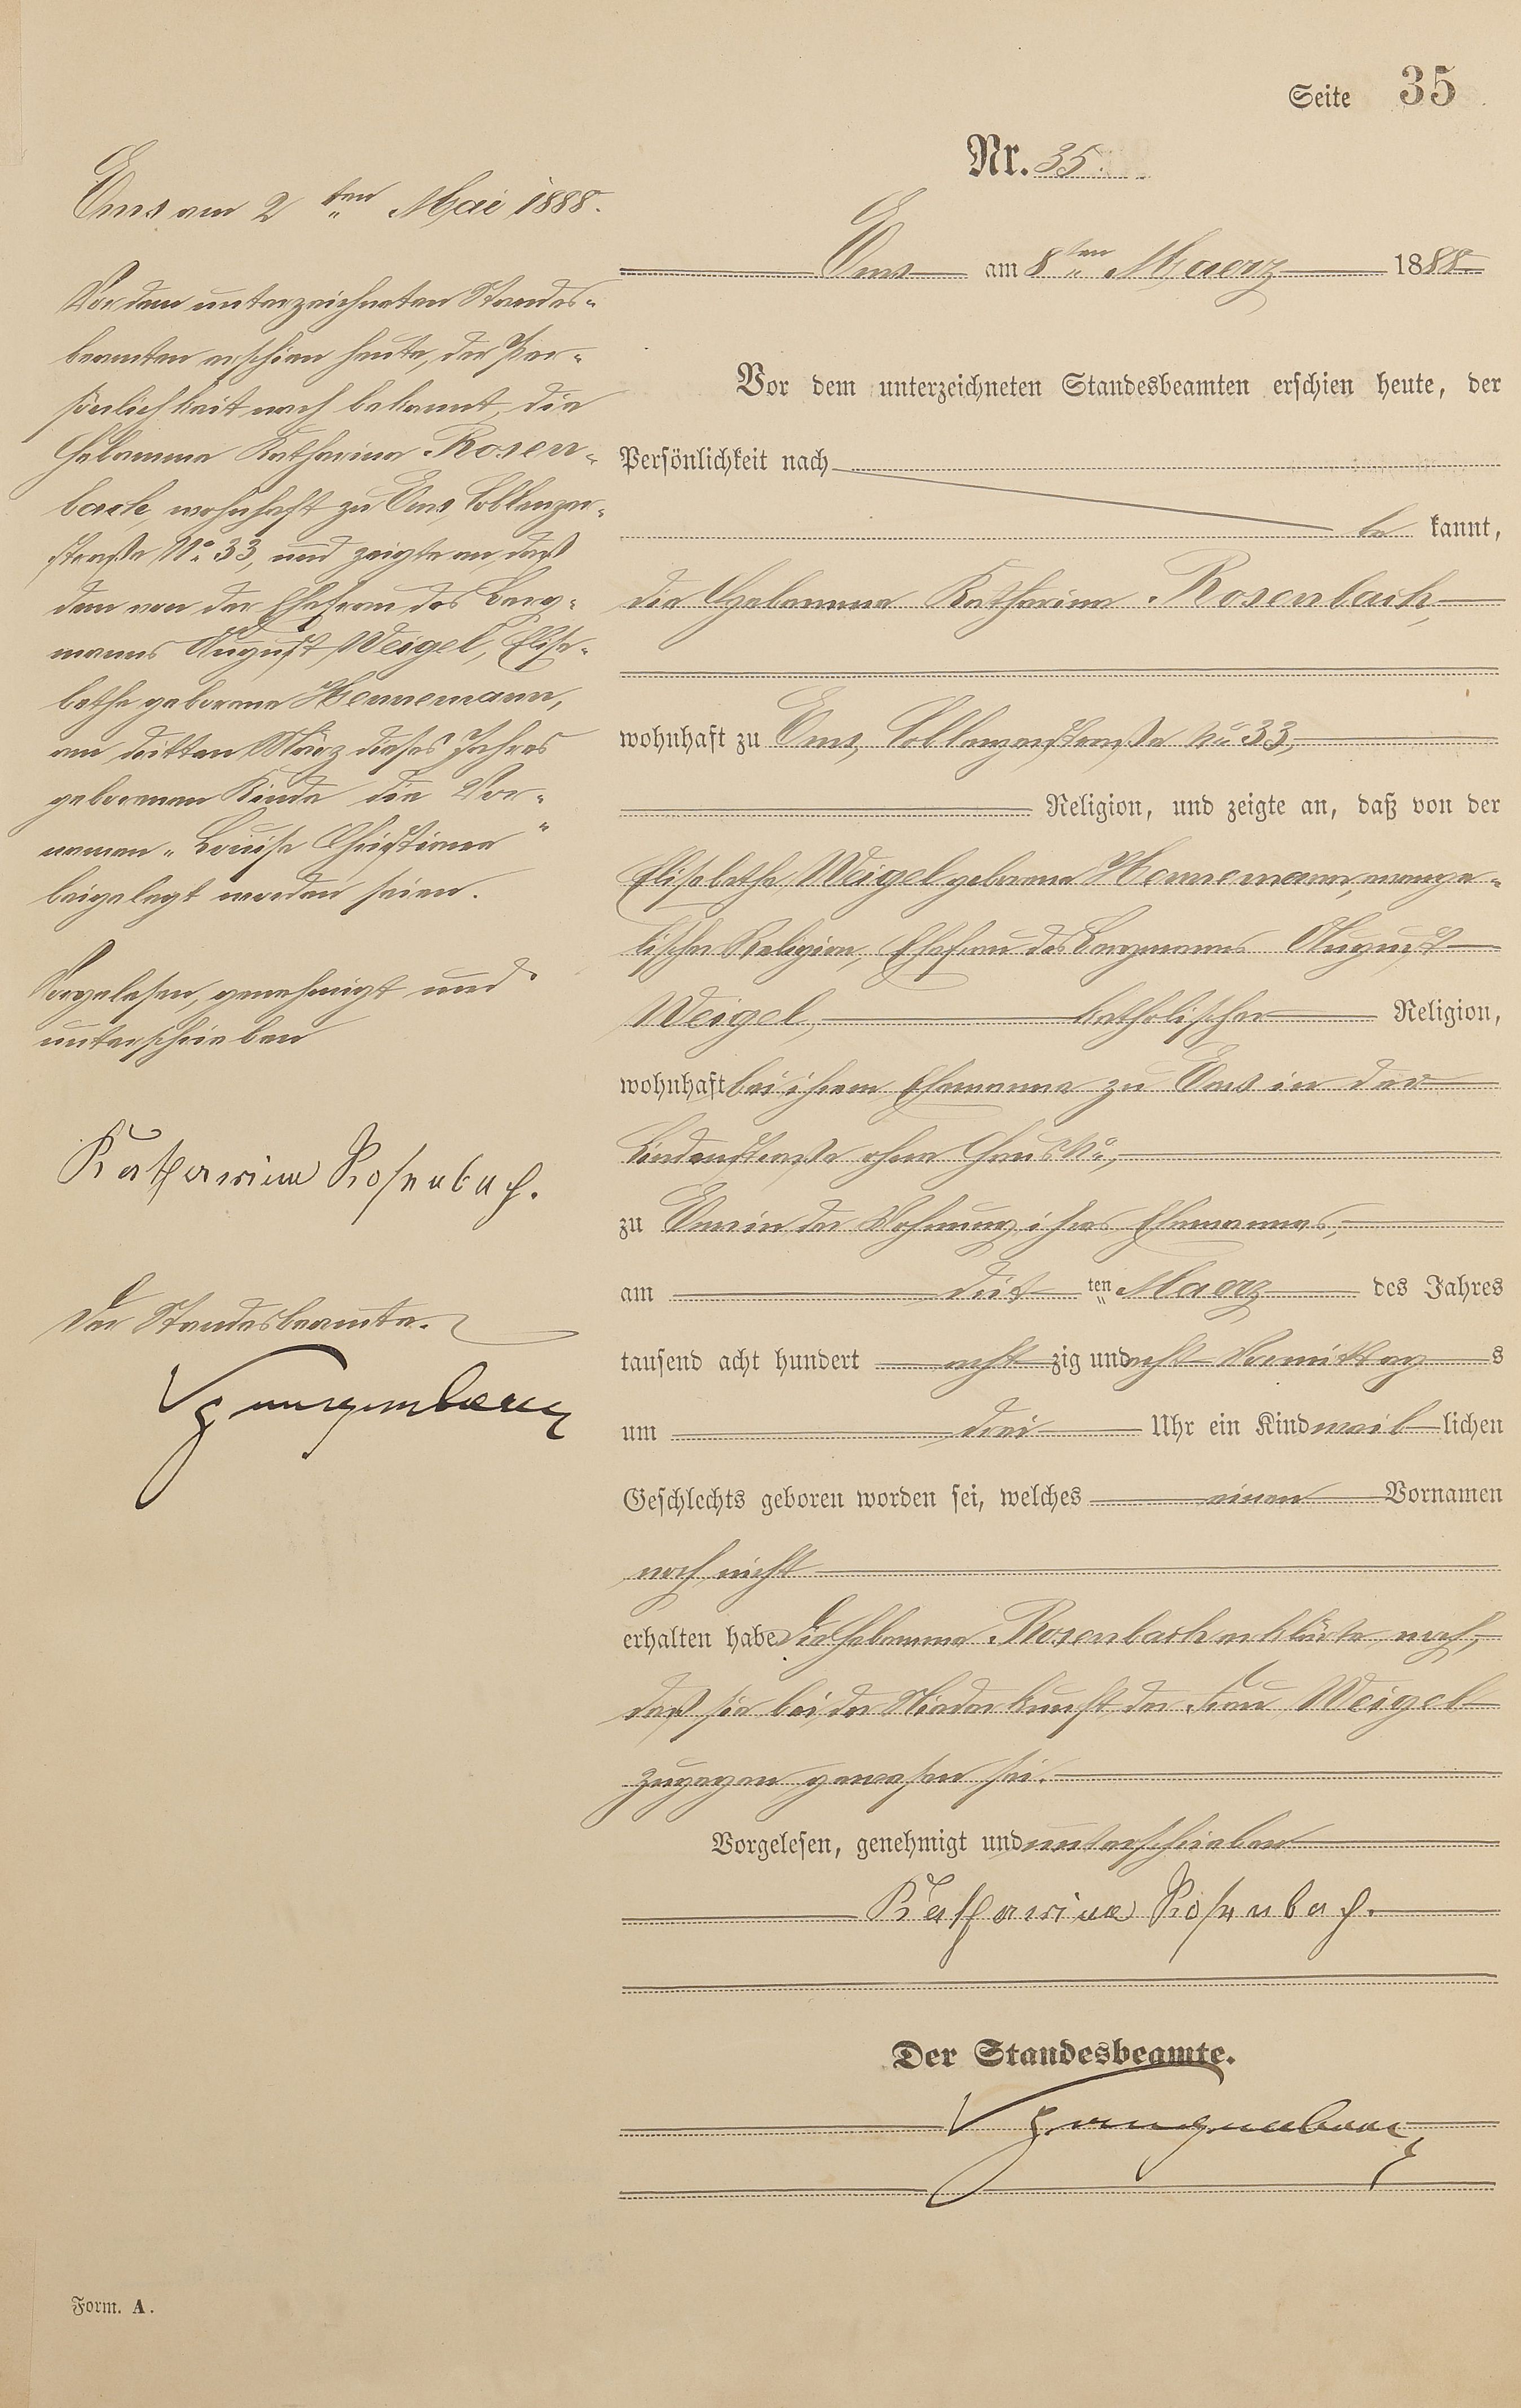 Seite 35
Nr. 35.
Ems am 8ten Maerz 1888.
Vor dem unterzeichneten Standesbeamten erschien heute, der
Persönlichkeit nach
be kannt,
die Hebamme Katharina Rosenbach,
wohnhaft zu Ems, Coblenzerstraße No 33,
Religion, und zeigte an, daß von der
Elisabethe Weigel geborene Hennemann, evange-
lischer Religion, Ehefrau des Bergmanns August
Weigel, katholischer Religion,
wohnhaft bei ihrem Ehemanne zu Ems in der
Lindenstraße ohne Haus No,
zu Ems in der Wohnung ihres Ehemannes,
am dritten Maerz des Jahres
tausend acht hundert acht zig und acht Vormittags
um drei Uhr ein Kind weib lichen
Geschlechts geboren worden sei, welches einen Vornamen
noch nicht
erhalten habe. Die Hebamme Rosenbach erklärte noch,
daß sie bei der Niederkunft der Frau Weigel
zugegen gewesen sei.
Vorgelesen, genehmigt und unterschrieben
Katharina Rosenbach.
Der Standesbeamte.
Ems am 2ten Mai 1888.
Vor dem unterzeichneten Standes-
beamten erschien heute, der Per-
sönlichkeit nach bekannt, die
Hebamme Katharina Rosen-
bach, wohnhaft zu Ems, Coblenzer-
straße No 33, und zeigte an, daß
dem von der Ehefrau des Berg-
manns August Weigel, Elisa-
bethe geborene Hennemann,
am dritten März dieses Jahres
geborenen Kinde die Vor-
namen „Louise Christiane"
beigelegt worden seien.
Vorgelesen, genehmigt und
unterschrieben
Katharina Rosenbach.
Der Standesbeamte.
Form. A.